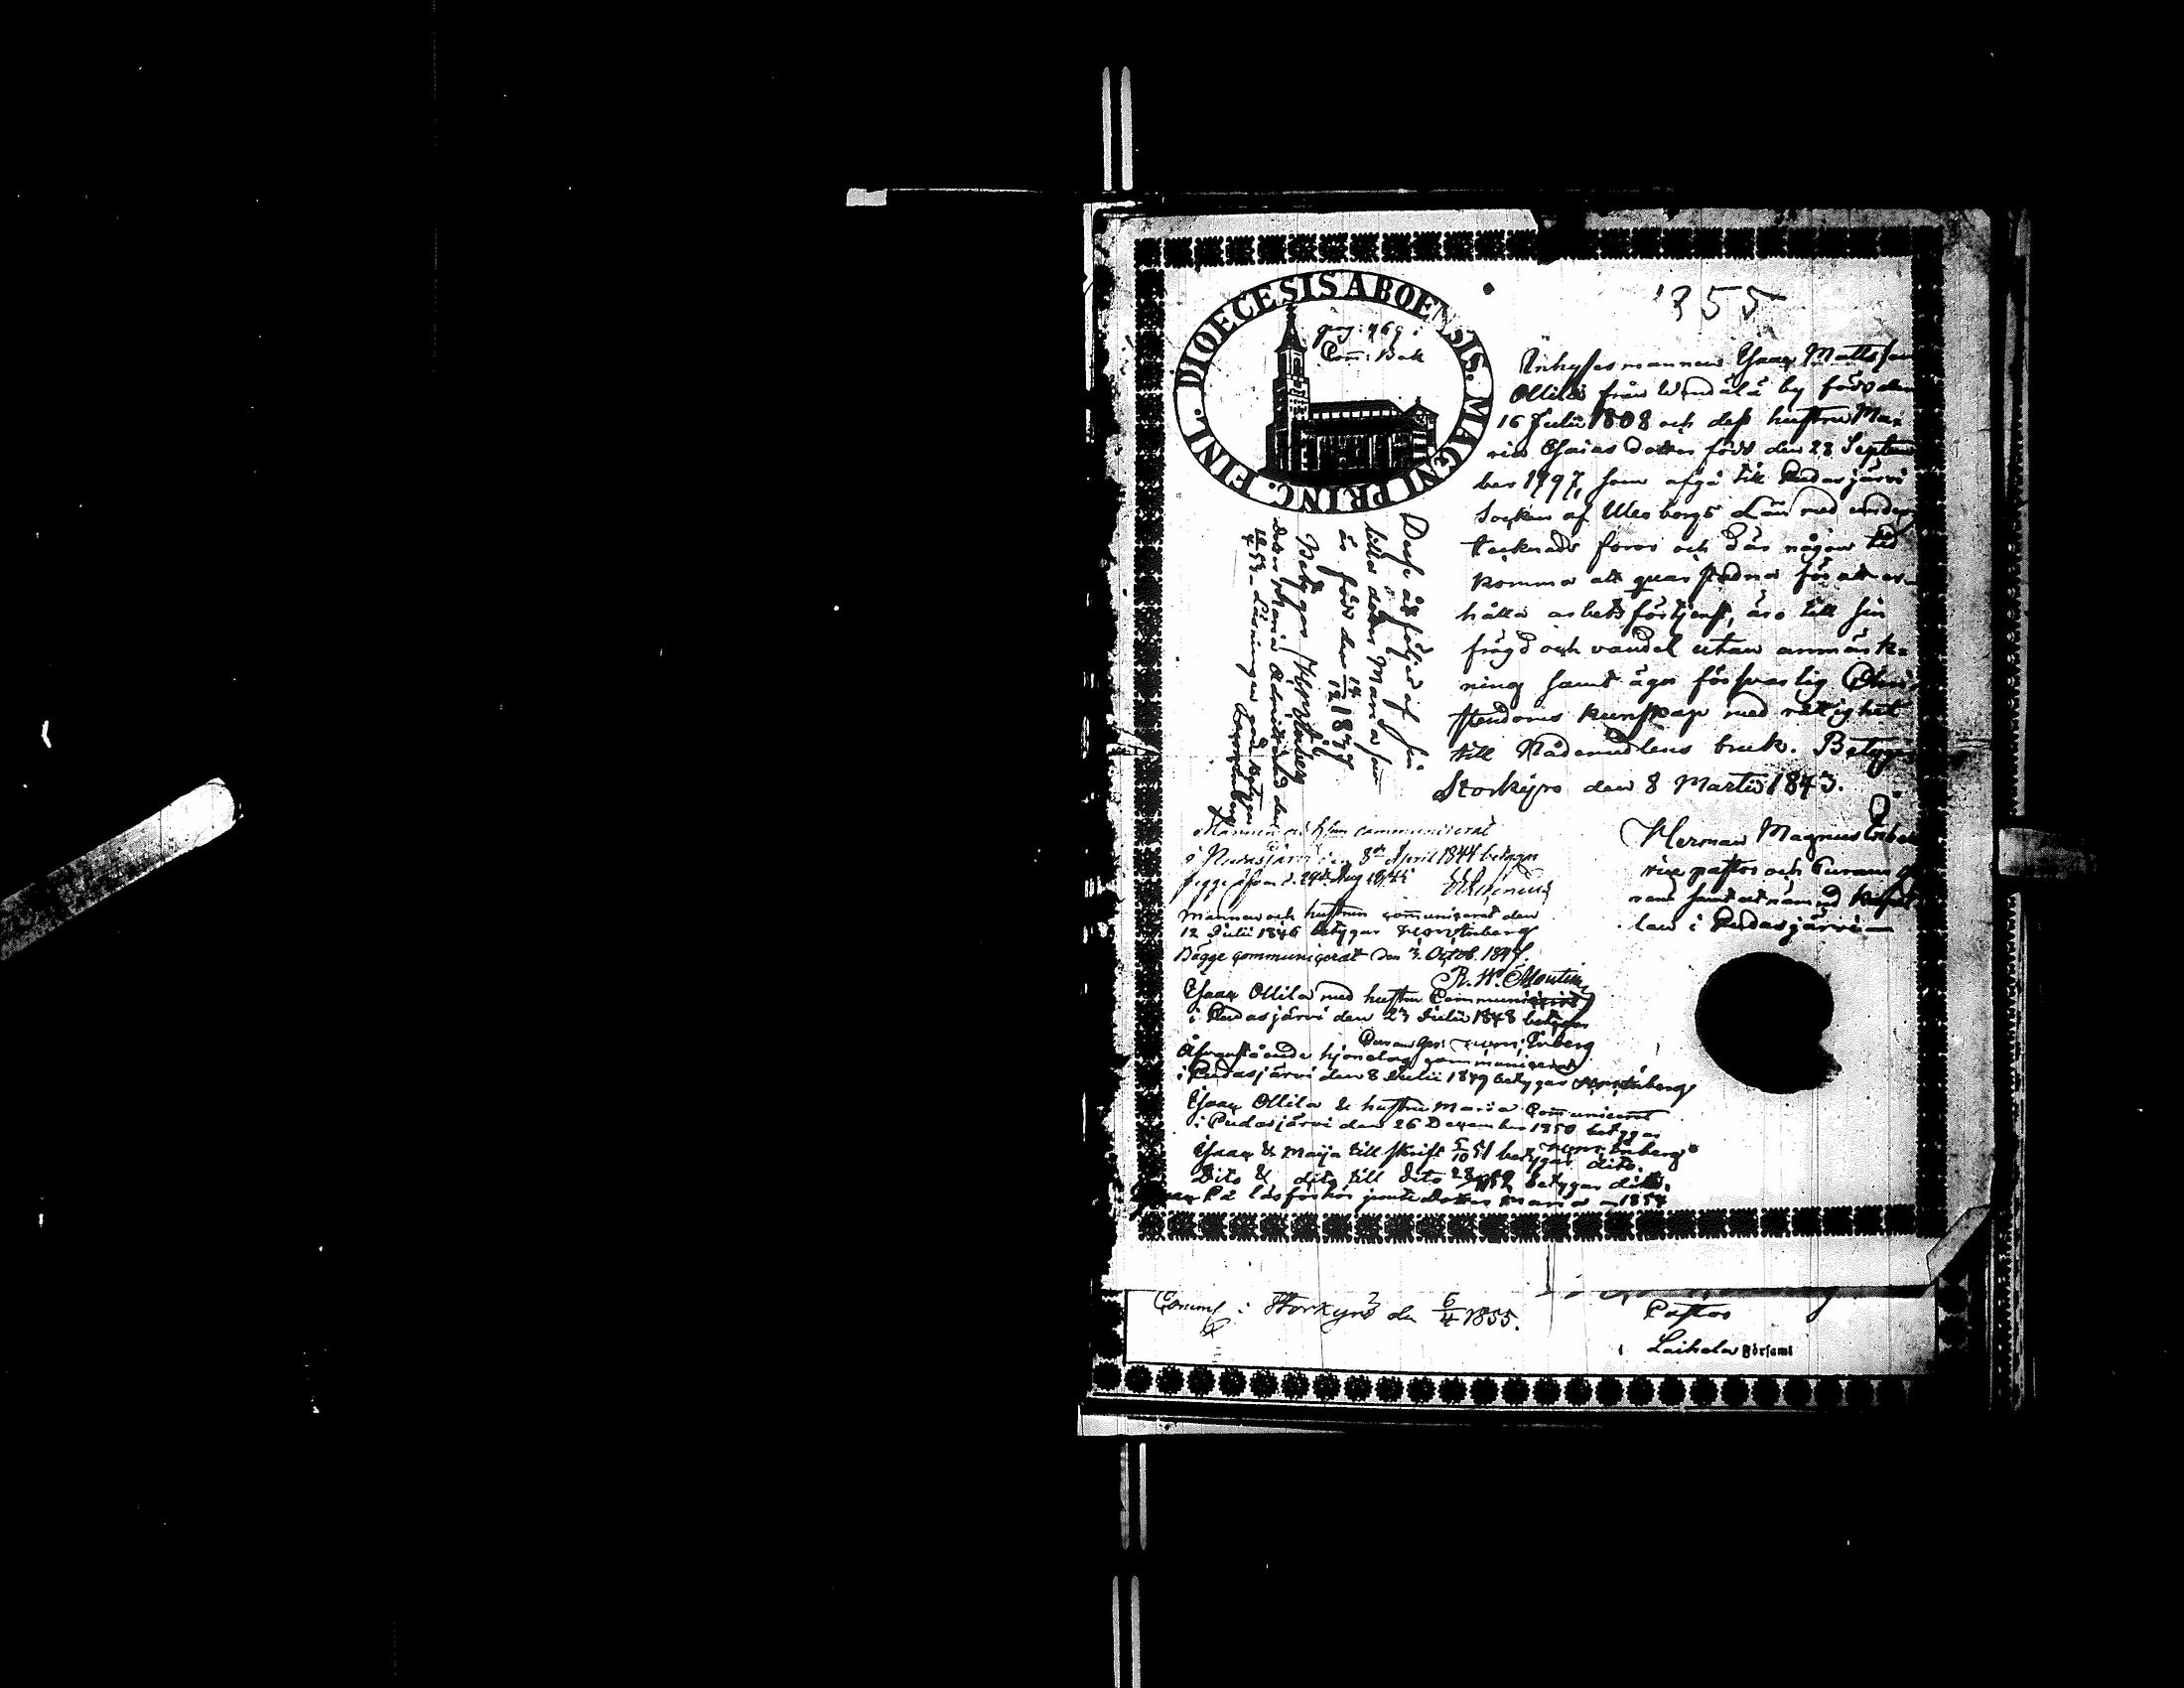 355
DIOECESIS ABOENSIS. MAGNI PRINC. FINL.
pag: 469 i
Com: Bok
Inhysesmannen Esaax Mattsson
Ollila från Wendälä by född den
16 Julii 1808 och dess hustru Ma-
ria Esaias dotter född den 28 Septem
ber 1797, som afgå till Pudasjärvi
Socken af Uleåborgs Län med under
tecknads foror och där någon tid
komma att quarstadna för att er-
hålla arbetsförtjenst, äro till sin
frägd och vandel utan anmärk-
ning samt äga försvarlig Chris
stendoms kunskap med rätighet
till Nådemedlens bruk. Betygar
Storkyro den 8 Martii 1843.
Herman Magnus
vice pastor och
i Pudasjärvi
Desse åtföljas af sin
lilla dotter Maria som
är född den 14/12 1837
Betygar
Dotter Maria Admitterad den
Läsningen god betygar
Mannen och hustrun communicerat
i Pudasjärvi den 8de April 1844 betygar
Mannen och hustrun communicerat den
12 Julii 1846 betygar
Bägge communicerat den 3. Octob. 1847.
Esaax Ollila med hustru Communicerat
i Pudasjärvi den 23 Julii 1848 betygar
Ofvanstående hjonelag communicerat
i Pudasjärvi den 8 Julii 1849 betygar
Esaax Ollila & hustru Maria Communicerat
i Pudasjärvi den 26 December 1850 betygar
Esaax & Maija till skrift 5/10 51 betygar dito.
Dito & dito till dito betygar dito.
På läsförhör jemte dotter Maria 1854
Comm: i Storkyro den 6/4 1855.
Pastor
i Laihela Församl